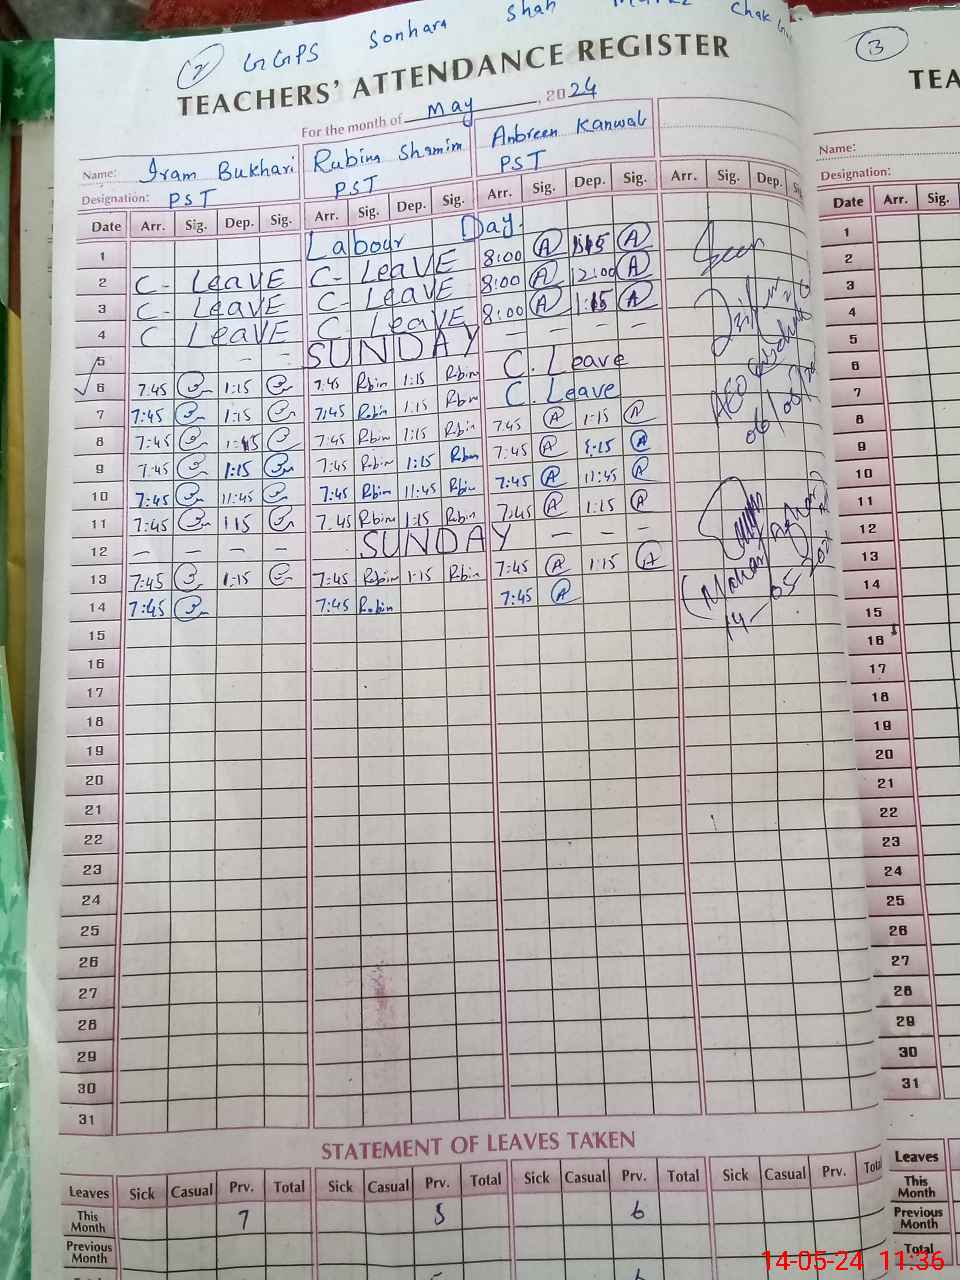 2 GGPS Sonhara Shah Chak
TEACHERS' ATTENDANCE REGISTER
For the month of May, 2024
Name: Iram Bukhari Rubina Shamim Anbreen Kanwal
Designation: PST PST PST
Date Arr. Sig. Dep. Sig. Arr. Sig. Dep. Sig. Arr. Sig. Dep. Sig. Arr. Sig. Dep.
1 Labour Day.
2 C- LEAVE C- LeaVE 8:00 A A
3 C- LEAVE C- LeaVE 8:00 A 12:00 A
4 C LEAVE C. LeaVE 8:00 A 1:15 A
5 - - SUNDAY - - - -
6 7:45 1:15 7:45 Robin 1:15 Robin C. Leave
7 7:45 1:15 7:45 Robin 1:15 Robin C. Leave
8 7:45 1:15 7:45 Robin 1:15 Robin 7:45 A 1:15 A
9 7:45 1:15 7:45 Robin 1:15 Robin 7:45 A 1:15 A
10 7:45 11:45 7:45 Robin 11:45 Robin 7:45 A 11:45 A
11 7:45 1:15 7:45 Robin 1:15 Robin 7:45 A 1:15 A
12 - - - - SUNDAY - - -
13 7:45 1:15 7:45 Robin 1:15 Robin 7:45 A 1:15 A
14 7:45 7:45 Robin 7:45 A
15
16
17
18
19
20
21
22
23
24
25
26
27
28
29
30
31
Seen
AEO
14-05-2024
STATEMENT OF LEAVES TAKEN
Leaves Sick Casual Prv. Total Sick Casual Prv. Total Sick Casual Prv. Total Sick Casual Prv. Total
This Month 7 5 6
Previous Month
3
TEA
Name:
Designation:
Date Arr. Sig.
1
2
3
4
5
6
7
8
9
10
11
12
13
14
15
16
17
18
19
20
21
22
23
24
25
26
27
28
29
30
31
Leaves
This Month
Previous Month
Total
14-05-24 11:36